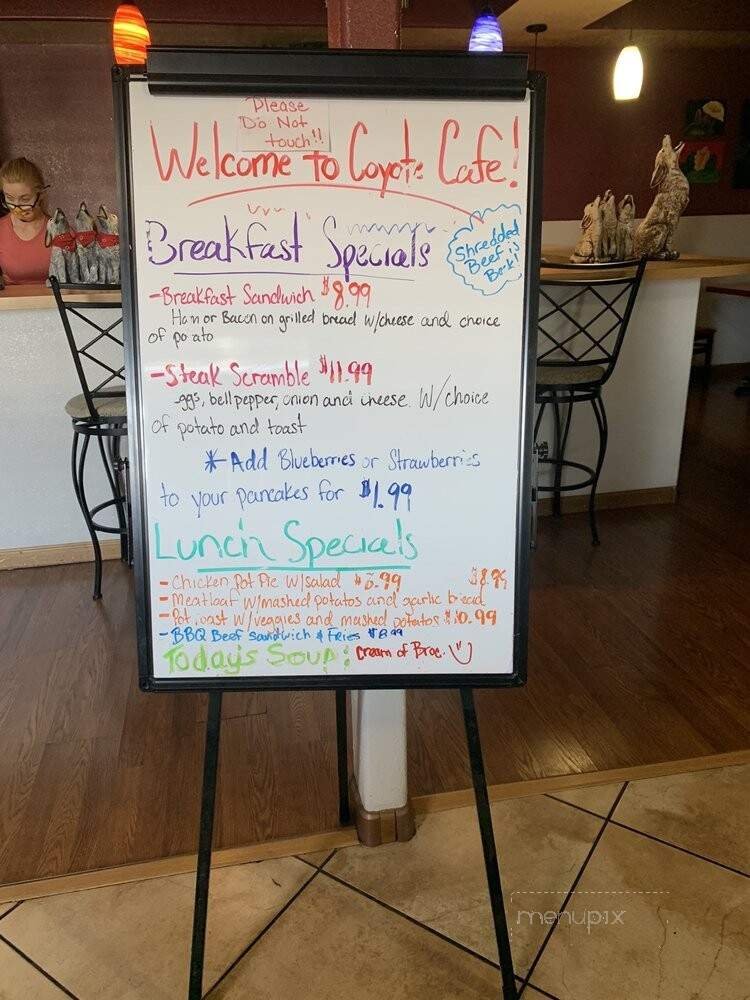 Please
Do Not
touch!!
Welcome to Coyote Cafe!
Breakfast Specials
Shredded
Beef is
Back!
-Breakfast Sandwich $8.99
Ham or Bacon on grilled bread w/cheese and choice
of potato
-Steak Scramble $11.99
eggs, bell pepper, onion and cheese. W/choice
of potato and toast
*Add Blueberries or Strawberries
to your pancakes for $1.99
Lunch Specials
- Chicken Pot Pie W/salad $8.99
- Meatloaf W/mashed potatos and garlic bread $8.99
- Pot roast W/veggies and mashed potatos $10.99
- BBQ Beef sandwich & Fries $8.99
Today's Soup: Cream of Broc.
menupix